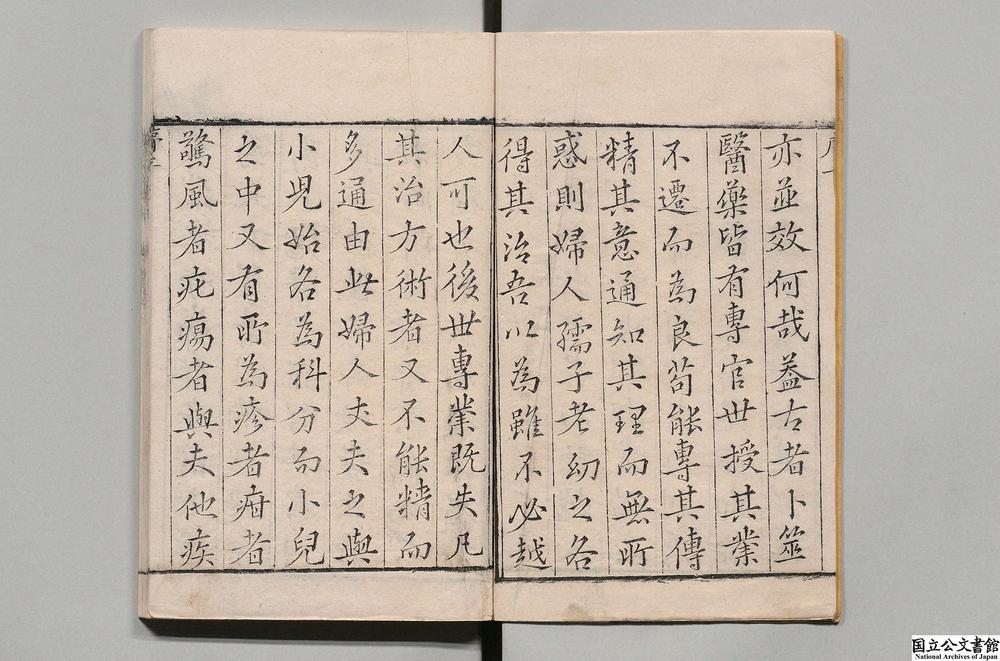 亦並效何哉葢古者卜筮
醫藥皆有專官世授其業
不遷而為良苟能專其傳
精其意通知其理而無所
惑則婦人孺子老幼之各
得其治吾以為雖不必越
人可也後世專業既失凡
其治方術者又不能精而
多通由此婦人丈夫之與
小兒始各為科分而小兒
之中又有所為疹者疳者
驚風者疕瘍者與夫他疾
国立公文書館
National Archives of Japan